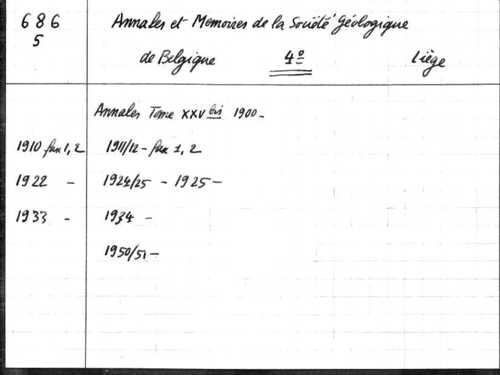 686 Annales et Mémoires de la Société Géologique
5
de Belgique 4º Liège
Annales Tome XXV bis 1900-
1910 fasc 1, 2 1911/12 - fasc 1, 2
1922 - 1924/25 - 1925 -
1933 - 1934 -
1950/51 -